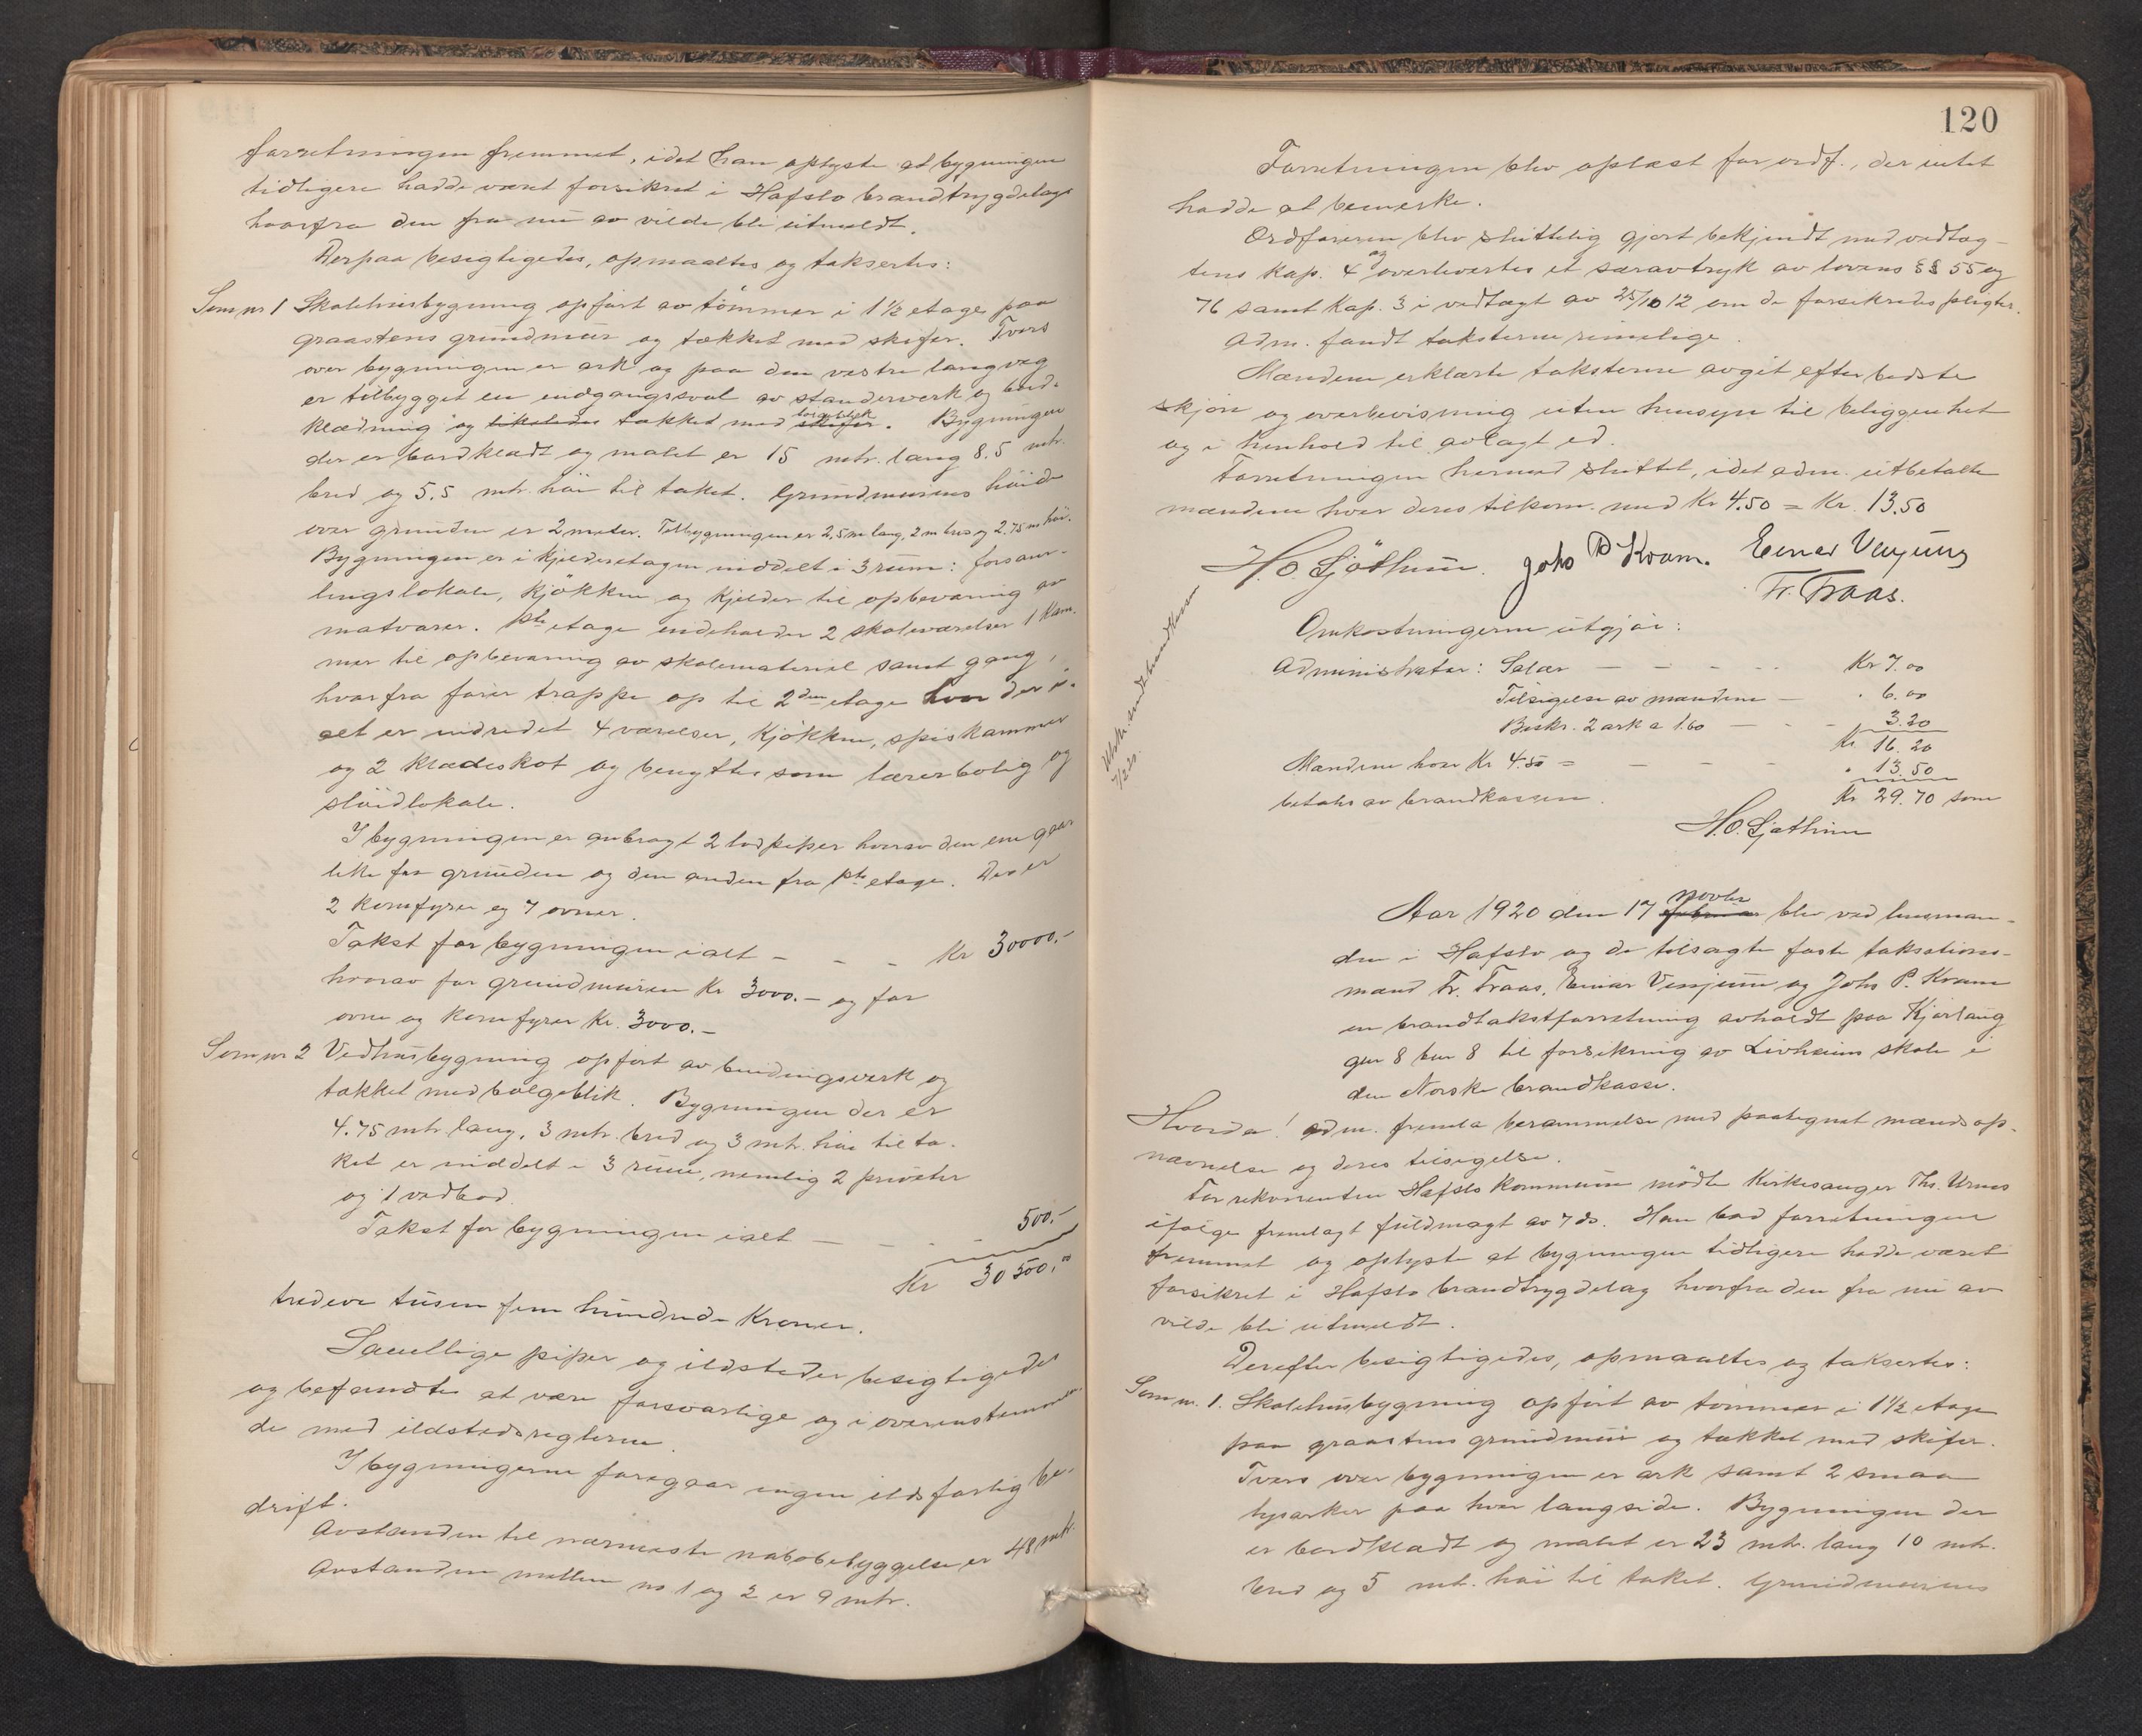 forretningen fremmet, idet han oplyste at bygningen
tidligere hadde været forsikret i Hafslo brandtrygdelag
hvorfra den fra nu av vilde bli utmeldt.
Derpaa besigtigedes, opmaaltes og taksertes:
Som nr 1 Skolehusbygning opført av tömmer i 1 1/2 etage paa
graastens grundmur og tækket med skifer. Tvers
over bygningen er ark og paa den vestre langvæg
er tilbygget en indgangssval av standerverk og bord-
klædning og likeledes tækket med skifer bølgeblik. Bygningen
der er bordklædt og malet er 15 mtr. lang 8.5 mtr.
bred og 5.5 mtr. höi til taket. Grundmurens höide
over grunden er 2 meter. Tilbygningen er 2,5 m lang, 2 m bred og 2.75 m höi.
Bygningen er i kjelderetagen inddelt i 3 rum: forsam-
lingslokale, kjökken og kjelder til opbevaring av
matvarer. 1ste etage indeholder 2 skoleværelser 1 kam-
mer til opbevaring av skolemateriel samt gang,
hvorfra förer trappe op til 2den etage hvor der i
alt er indredet 4 værelser, kjökken, spiskammer
og 2 klædeskot og benyttes som lærerbolig og
slöidlokale.
I bygningen er anbragt 2 lodpiper hvorav den ene gaar
like fra grunden og den anden fra 1ste etage. Der er
2 komfyrer og 7 ovner.
Takst for bygningen ialt - - - Kr 30000.-
hvorav for grundmuren Kr 3000.- og for
ovne og komfyrer Kr. 3000.-
Som nr 2 Vedhusbygning opført av bindingsverk og
tækket med bølgeblik. Bygningen der er
4.75 mtr. lang, 3 mtr. bred og 3 mtr. höi til ta-
ket er inddelt i 3 rum, nemlig 2 priveter
og 1 vedbod.
Takst for bygningen ialt - - - 500.-
Kr 30500.00
tredeve tusen fem hundrede Kroner.
Samtlige piper og ildsteder besigtigedes
og befandtes at være forsvarlige og i overenstemmen-
de med ildstedsreglerne.
I bygningerne foregaar ingen ildsfarlig be-
drift.
Avstanden til nærmeste nabobebyggelse er 48 mtr.
Avstanden mellem no 1 og 2 er 9 mtr.
120
Forretningen blev oplæst for ordf., der intet
hadde at bemerke.
Ordføreren blev sluttelig gjort bekjendt med vedtæg-
tens kap. 4 og overlevertes et særavtryk av lovens §§ 55 og
76 samt kap. 3 i vedtægt av 25/10 12 om de forsikredes pligter.
Adm. fandt taksterne rimelige.
Mændene erklærte taksterne avgit efter bedste
skjön og overbevisning uten hensyn til beliggenhet
og i henhold til avlagt ed.
Forretningen hermed sluttet, idet adm. utbetalte
mændene hver deres tilkom. med Kr 4.50 = Kr. 13.50
H.O. Sjøthun. Johs P Kvam. Einar Venjum
Fr. Traas.
Omkostningerne utgjör:
Administrator: Salær - - - - Kr 7.00
Tilsigelse av mændene - " 6.00
Beskr. 2 ark a 1.60 - - - 3.20
Kr. 16.20
Mændene hver Kr 4.50 = - - - " 13.50
Kr. 29.70 som
betales av brandkassen.
H.O. Sjøthun
7/2 20.
Aar 1920 den 17 februar novbr blev ved lensman-
den i Hafslo og de tilsagte faste taksations-
mænd Fr. Traas, Einar Venjum og Johs P. Kvam
en brandtakstforretning avholdt paa Kjørlaug
gnr 8 bnr 8 til forsikring av Livheim skole i
den Norske brandkasse.
Hvorda! Adm. fremla berammelse med paategnet mændsop-
nævnelse og deres tilsigelse.
For rekvirenten Hafslo kommune mødte Kirkesanger Ths. Urnes
ifølge fremlagt fuldmagt av 7 ds. Han bad forretningen
fremmet og oplyste at bygningen tidligere hadde været
forsikret i Hafslo brandtrygdelag hvorfra den fra nu av
vilde bli utmeldt.
Derefter besigtigedes, opmaaltes og taksertes:
Som nr. 1. Skolehusbygning opført av tömmer i 1 1/2 etage
paa graastens grundmur og tækket med skifer.
Tvers over bygningen er ark samt 2 smaa
lysarker paa hver langside. Bygningen der
er bordklædt og malet er 23 mtr. lang 10 mtr.
bred og 5 mtr. höi til taket. Grundmurens